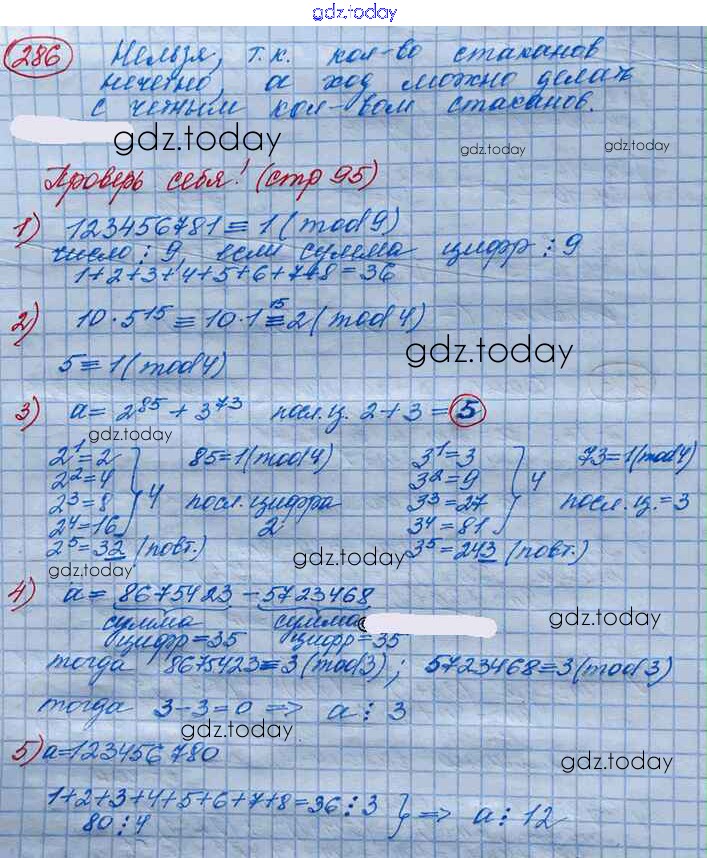 gdz.today
286 Нельзя, т.к. кол-во стаканов
нечетно, а ход можно делать
с четным кол-вом стаканов.
gdz.today
gdz.today
gdz.today
Проверь себя! (стр 95)
1) 123456781 ≡ 1 (mod 9)
число ⋮ 9, если сумма цифр ⋮ 9
1+2+3+4+5+6+7+8=36
2) 10·5¹⁵ ≡ 10·1¹⁵ ≡ 2 (mod 4)
gdz.today
5 ≡ 1 (mod 4)
3) a = 2⁸⁵ + 3⁷³ посл.ц. 2+3=5
gdz.today
2¹=2 85=1(mod 4) 3¹=3 73=1(mod 4)
2²=4 3²=9
2³=8 4 посл. цифра 3³=27 4 посл. ц.=3
2⁴=16 2 3⁴=81
2⁵=32 (повт.) 3⁵=243 (повт.)
gdz.today
gdz.today
4) a = 8675423 − 5723468
сумма сумма
цифр=35 цифр=35
gdz.today
тогда 8675423≡3 (mod 3); 5723468≡3 (mod 3)
тогда 3−3=0 => a ⋮ 3
gdz.today
5) a=123456780
gdz.today
1+2+3+4+5+6+7+8=36 ⋮ 3
80 ⋮ 4 } => a ⋮ 12